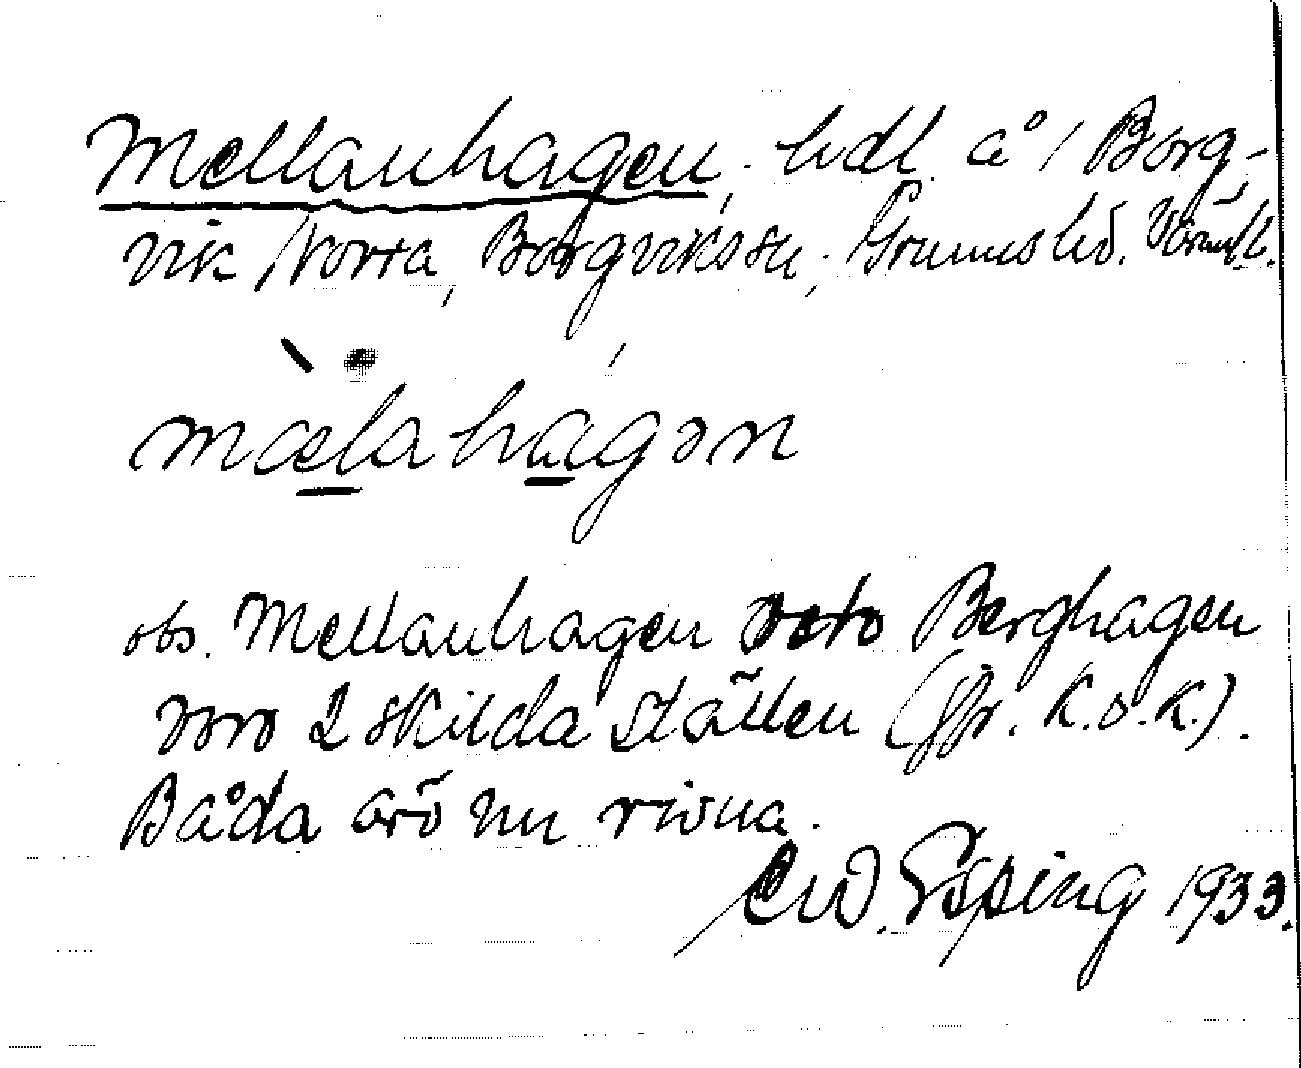 Mellanhagen, hdl. å / Borg-
vik Norra, Borgviks sn, Grums hd. Värml.
mælahagən
obs. Mellanhagen och Berghagen
voro 2 skilda ställen (jfr. K.o.K.).
Båda äro nu rivna.
Esping 1933.